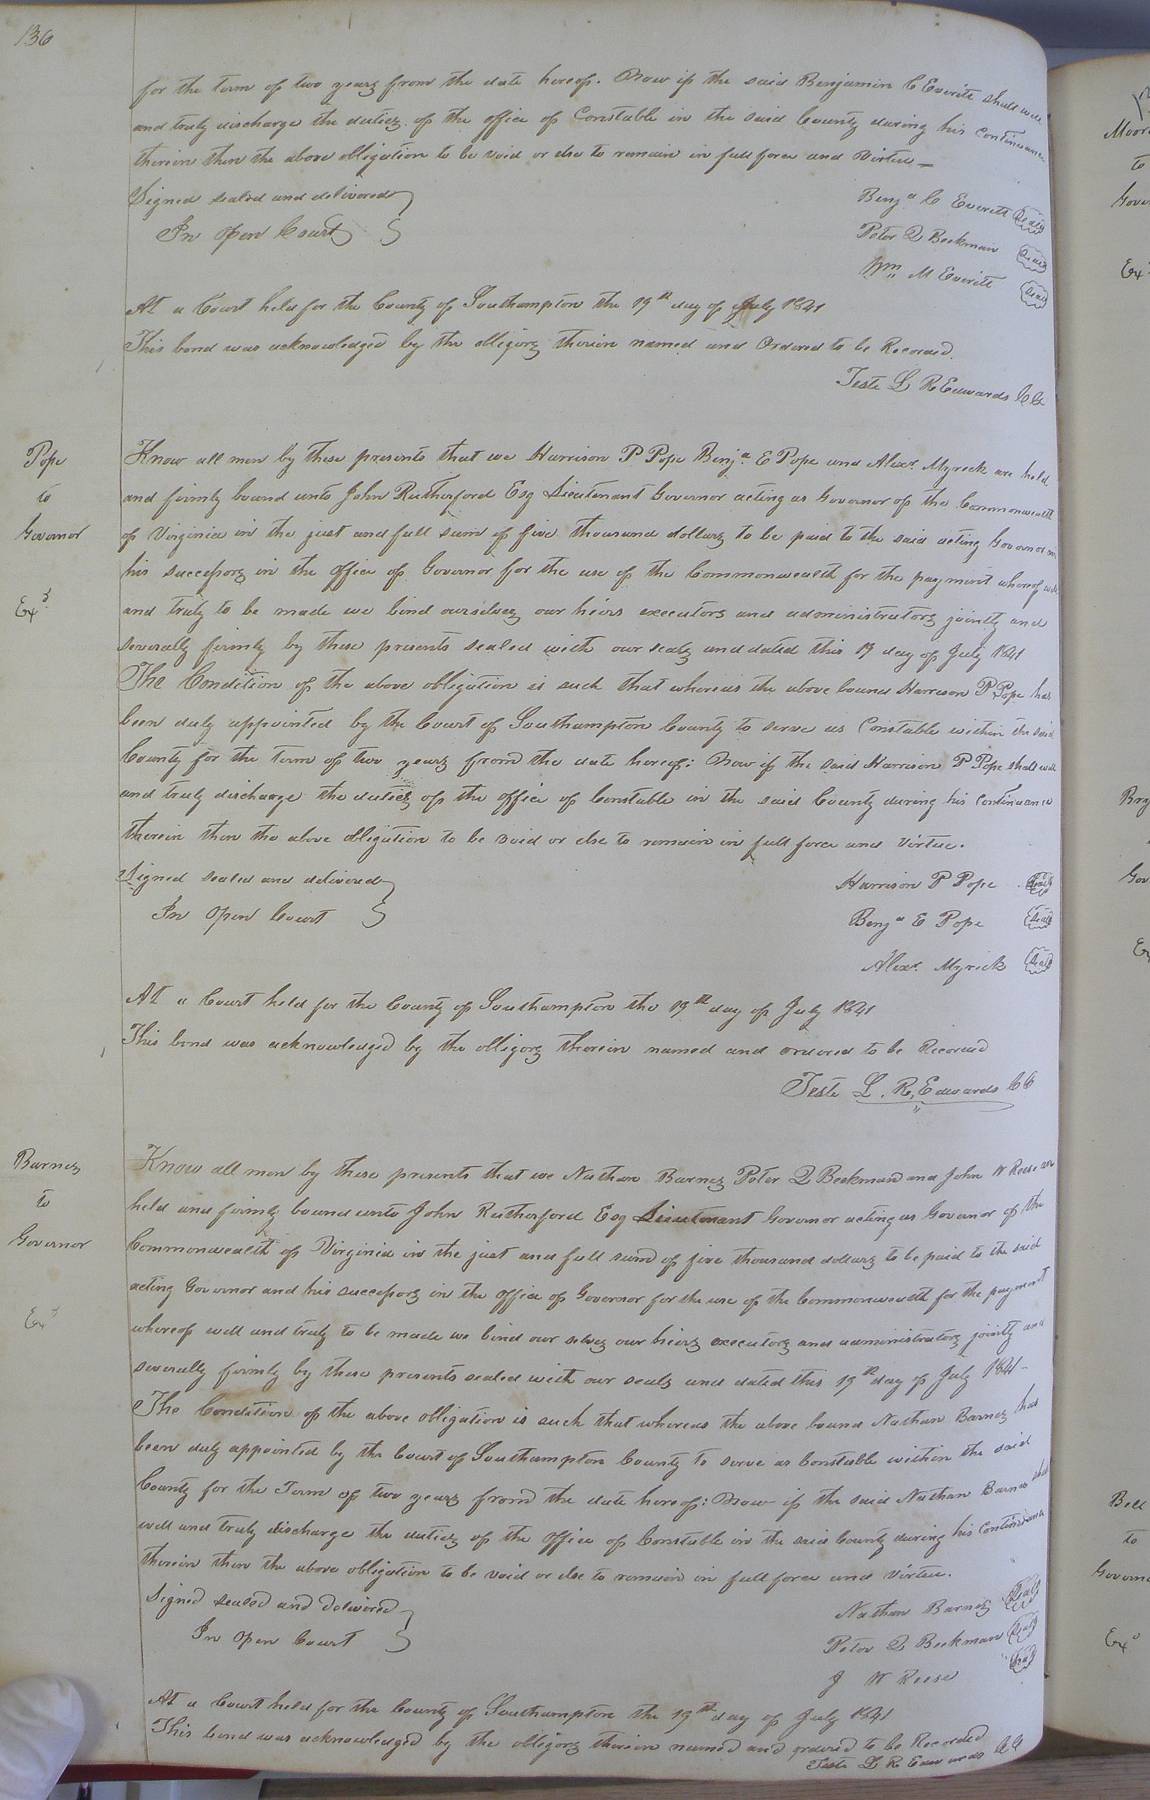 136
for the term of two years from the date hereof. Now if the said Benjamin C Everitt shall well
and truly discharge the duties of the office of Constable in the said County during his continuance
therein then the above obligation to be void or else to remain in full force and virtue —
Signed sealed and delivered
In open Court
Benja C Everitt Seal
Peter Q Beekman Seal
Wm M Everitt Seal
At a Court held for the County of Southampton the 19th day of July 1841
This bond was acknowledged by the obligors therein named and Ordered to be Recorded.
Teste L R Edwards CC
Pope
to
Governor
Exd
Know all men by these presents that we Harrison P Pope Benja E Pope and Alexr Myrick are held
and firmly bound unto John Rutherford Esq Lieutenant Governor acting as Governor of the Commonwealth
of Virginia in the just and full sum of five thousand dollars to be paid to the said acting Governor
his successors in the office of Governor for the use of the Commonwealth for the payment whereof well
and truly to be made we bind ourselves our heirs executors and administrators jointly and
severally firmly by these presents sealed with our seals and dated this 19 day of July 1841
The Condition of the above obligation is such that whereas the above bound Harrison P Pope has
been duly appointed by the Court of Southampton County to serve as Constable within the said
County for the term of two years from the date hereof: Now if the said Harrison P Pope shall well
and truly discharge the duties of the office of Constable in the said County during his continuance
therein then the above obligation to be void or else to remain in full force and virtue.
Signed sealed and delivered
In open Court
Harrison P Pope Seal
Benja E Pope Seal
Alexr Myrick Seal
At a Court held for the County of Southampton the 19th day of July 1841
This bond was acknowledged by the obligors therein named and ordered to be Recorded
Teste L. R. Edwards CC
Barnes
to
Governor
Exd
Know all men by these presents that we Nathan Barnes Peter Q Beekman and John W Reese are
held and firmly bound unto John Rutherford Esq Lieutenant Governor acting as Governor of the
Commonwealth of Virginia in the just and full sum of five thousand dollars to be paid to the said
acting Governor and his successors in the office of Governor for the use of the Commonwealth for the payment
whereof well and truly to be made we bind our selves our heirs executors and administrators jointly and
severally firmly by these presents sealed with our seals and dated this 19th day of July 1841-
The Condition of the above obligation is such that whereas the above bound Nathan Barnes has
been duly appointed by the Court of Southampton County to serve as Constable within the said
County for the Term of two years from the date hereof: Now if the said Nathan Barnes shall
well and truly discharge the duties of the office of Constable in the said County during his continuance
therein then the above obligation to be void or else to remain in full force and virtue.
Signed sealed and delivered
In open Court
Nathan Barnes Seal
Peter Q Beekman Seal
J W Reese Seal
At a Court held for the County of Southampton the 19th day of July 1841
This bond was acknowledged by the obligors therein named and ordered to be Recorded
Teste L R Edwards CC
to
Bell
to